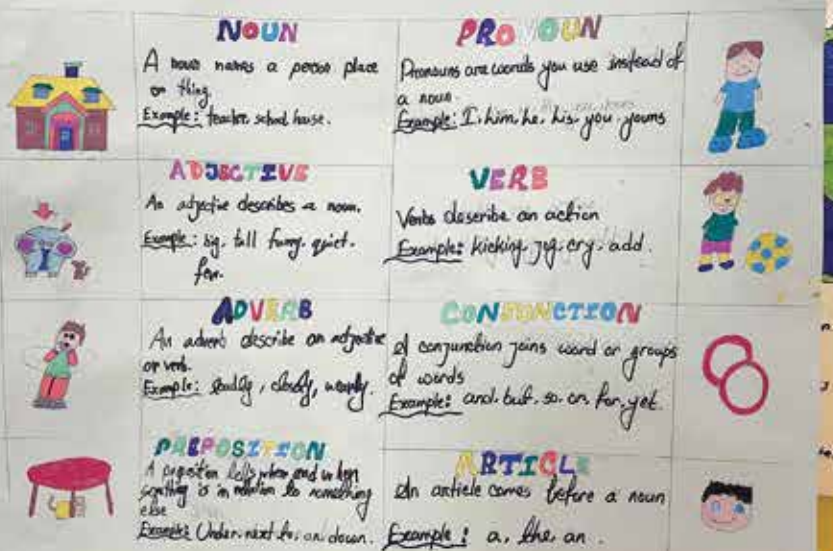 NOUN
A noun names a person place
or thing
Example: teacher, school house.
PRONOUN
Pronouns are words you use instead of
a noun
Example: I, him, he, his, you, yours
ADJECTIVE
An adjective describes a noun.
Example: big, tall funny, quiet.
few.
VERB
Verbs describe an action
Example: kicking, jog, cry, add.
ADVERB
An adverb describe an adjective
or verb.
Example: loudly,
CONJUNCTION
A conjunction joins word or groups
of words
Example: and, but, so, or, for, yet.
PREPOSITION
A tells when and when
is in relation to something
else
Example: Under, next to, on, down.
ARTICLE
An article comes before a noun
Example: a, the, an.
I